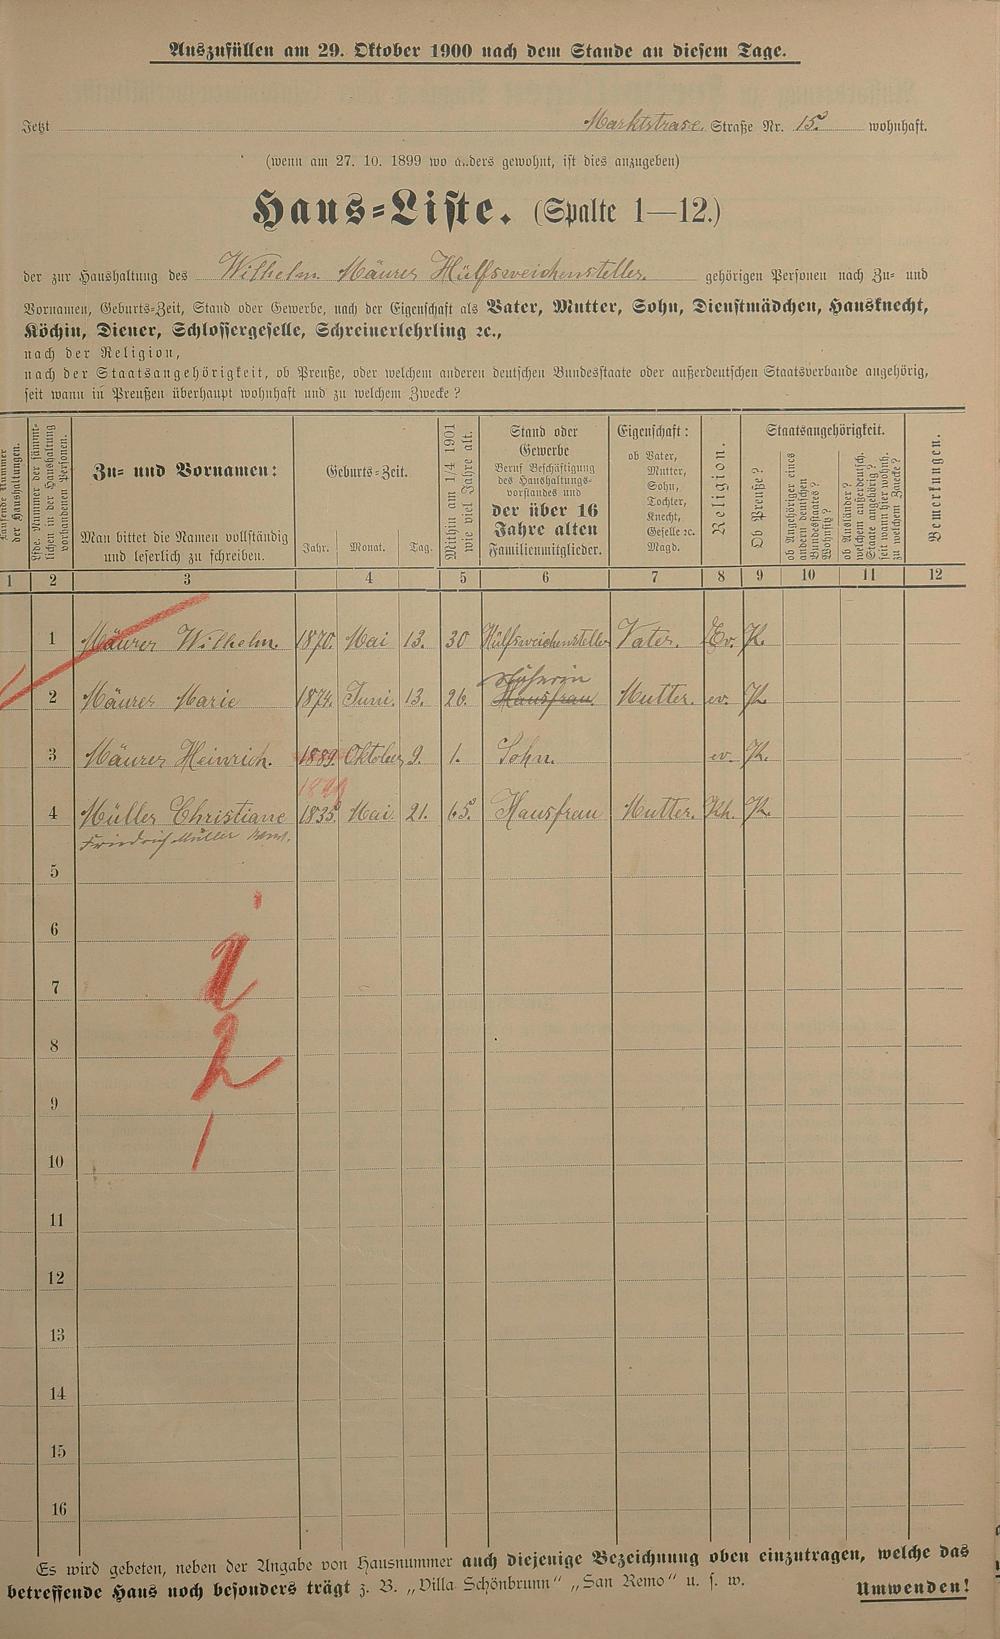 Auszufüllen am 29. Oktober 1900 nach dem Stande an diesem Tage.
Jetzt Marktstrase. Straße Nr. 15. wohnhaft.
(wenn am 27. 10. 1899 wo anders gewohnt, ist dies anzugeben)
Haus-Liste. (Spalte 1—12.)
der zur Haushaltung des Wilhelm Mäurer Hülfsweichensteller. gehörigen Personen nach Zu- und
Vornamen, Geburts-Zeit, Stand oder Gewerbe, nach der Eigenschaft als Vater, Mutter, Sohn, Dienstmädchen, Hausknecht,
Köchin, Diener, Schlossergeselle, Schreinerlehrling ꝛc.,
nach der Religion,
nach der Staatsangehörigkeit, ob Preuße, oder welchem anderen deutschen Bundesstaate oder außerdeutschen Staatsverbande angehörig,
seit wann in Preußen überhaupt wohnhaft und zu welchem Zwecke?
Laufende Nummer
der Haushaltungen.
Lfde. Nummer der sämmt-
lichen in der Haushaltung
vorhandenen Personen.
Zu- und Vornamen:
Man bittet die Namen vollständig
und leserlich zu schreiben.
Geburts-Zeit.
Jahr. Monat. Tag.
Mithin am 1/4 1901
wie viel Jahre alt.
Stand oder
Gewerbe
Beruf Beschäftigung
des Haushaltungs-
vorstandes und
der über 16
Jahre alten
Familienmitglieder.
Eigenschaft:
ob Vater,
Mutter,
Sohn,
Tochter,
Knecht,
Geselle ꝛc.
Magd.
Religion.
Staatsangehörigkeit.
Ob Preuße?
ob Angehöriger eines
andern deutschen
Bundesstaates?
Wohnsitz?
ob Ausländer?
welchem außerdeutsch.
Staate angehörig?
seit wann hier wohnh.
zu welchem Zwecke?
Bemerkungen.
1 2 3 4 5 6 7 8 9 10 11 12
1 Mäurer Wilhelm. 1870. Mai 13. 30 Hülfsweichensteller Vater. Ev.
Näherin
2 Mäurer Marie 1874. Juni. 13. 26. Hausfrau. Mutter. ev.
3 Mäurer Heinrich. 1889. Oktober 9. 1. Sohn. ev.
1899
4 Müller Christiane 1835. Mai 21. 65. Hausfrau Mutter. Kth.
Friedrich Müller Wwe.
5
6
7
8
2
9
1
10
11
12
13
14
15
16
Es wird gebeten, neben der Angabe von Hausnummer auch diejenige Bezeichnung oben einzutragen, welche das
betreffende Haus noch besonders trägt z. B. „Villa Schönbrunn“ „San Remo“ u. s. w. Umwenden!